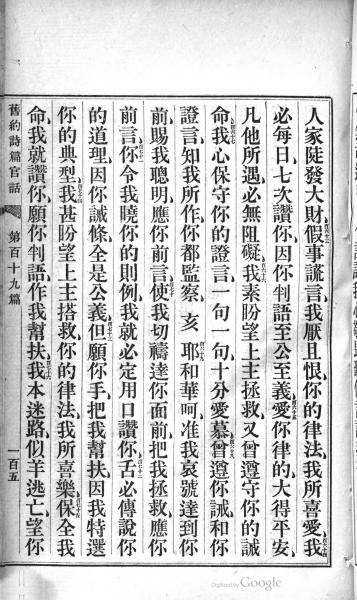 人家陡發大財假事謊言我厭且恨你的律法我所喜愛我
必每日七次讚你因你判語至公至義愛你律的大得平安
凡他所遇必無阻礙我素盼望上主拯救又曾遵守你的誡
命我心保守你的證言一句一句十分愛慕曾遵你誡和你
證言知我所作你都監察亥耶和華呵准我哀號達到你
前賜我聰明應你前言使我切禱達你面前把我拯救應你
前言你令我曉你的則例我就必定用口讚你舌必傳說你
的道理因你誡條全是公義但願你手把我幫扶因我特選
你的典型我甚盼望上主搭救你的律法我所喜樂保全我
命我就讚你願你判語作我幫扶我本迷路似羊逃亡望你
舊約詩篇官話 第百十九篇 一百五
Digitized by Google